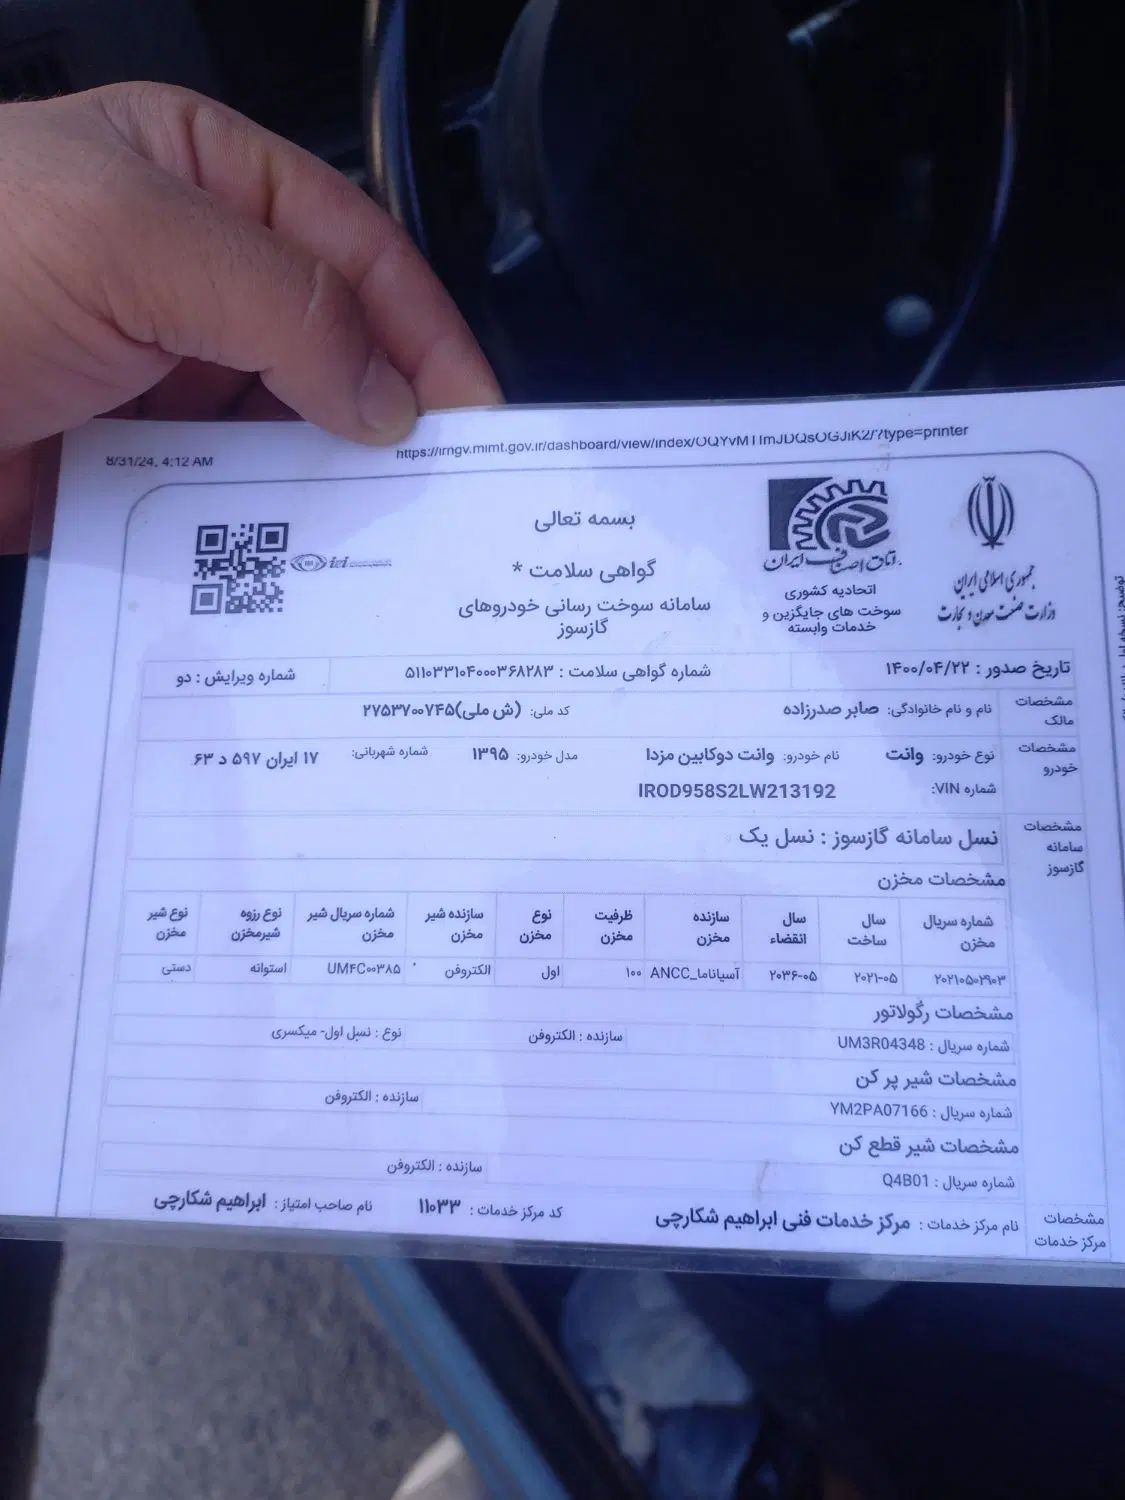 8/31/24, 4:12 AM
بسمه تعالی
گواهی سلامت *
سامانه سوخت رسانی خودروهای
گازسوز
جمهوری اسلامی ایران
وزارت صنعت معدن و تجارت
اتاق اصناف ایران
اتحادیه کشوری
سوخت های جایگزین و
خدمات وابسته
ici
تاریخ صدور : ۱۴۰۰/۰۴/۲۲ شماره گواهی سلامت : ۵۱۱۰۳۳۱۰۴۰۰۰۳۶۸۲۸۳ شماره ویرایش : دو
مشخصات مالک
نام و نام خانوادگی: صابر صدرزاده کد ملی: (ش ملی)۲۷۵۳۷۰۰۷۴۵
مشخصات خودرو
نوع خودرو: وانت نام خودرو: وانت دوکابین مزدا مدل خودرو: ۱۳۹۵ شماره شهربانی: ۱۷ ایران ۵۹۷ د ۶۳
شماره VIN: IROD958S2LW213192
مشخصات سامانه گازسوز
نسل سامانه گازسوز : نسل یک
مشخصات مخزن
شماره سریال مخزن سال ساخت سال انقضاء سازنده مخزن ظرفیت مخزن نوع مخزن سازنده شیر مخزن شماره سریال شیر مخزن نوع رزوه شیرمخزن نوع شیر مخزن
۲۰۲۱۰۵۰۲۹۰۳ ۲۰۲۱-۰۵ ۲۰۳۶-۰۵ آسیاناما_ANCC ۱۰۰ اول الکتروفن UM۴C۰۰۳۸۵ استوانه دستی
مشخصات رگولاتور
شماره سریال : UM3R04348 سازنده : الکتروفن نوع : نسل اول- میکسری
مشخصات شیر پر کن
شماره سریال : YM2PA07166 سازنده : الکتروفن
مشخصات شیر قطع کن
شماره سریال : Q4B01 سازنده : الکتروفن
مشخصات مرکز خدمات
نام مرکز خدمات : مرکز خدمات فنی ابراهیم شکارچی کد مرکز خدمات : ۱۱۰۳۳ نام صاحب امتیاز : ابراهیم شکارچی